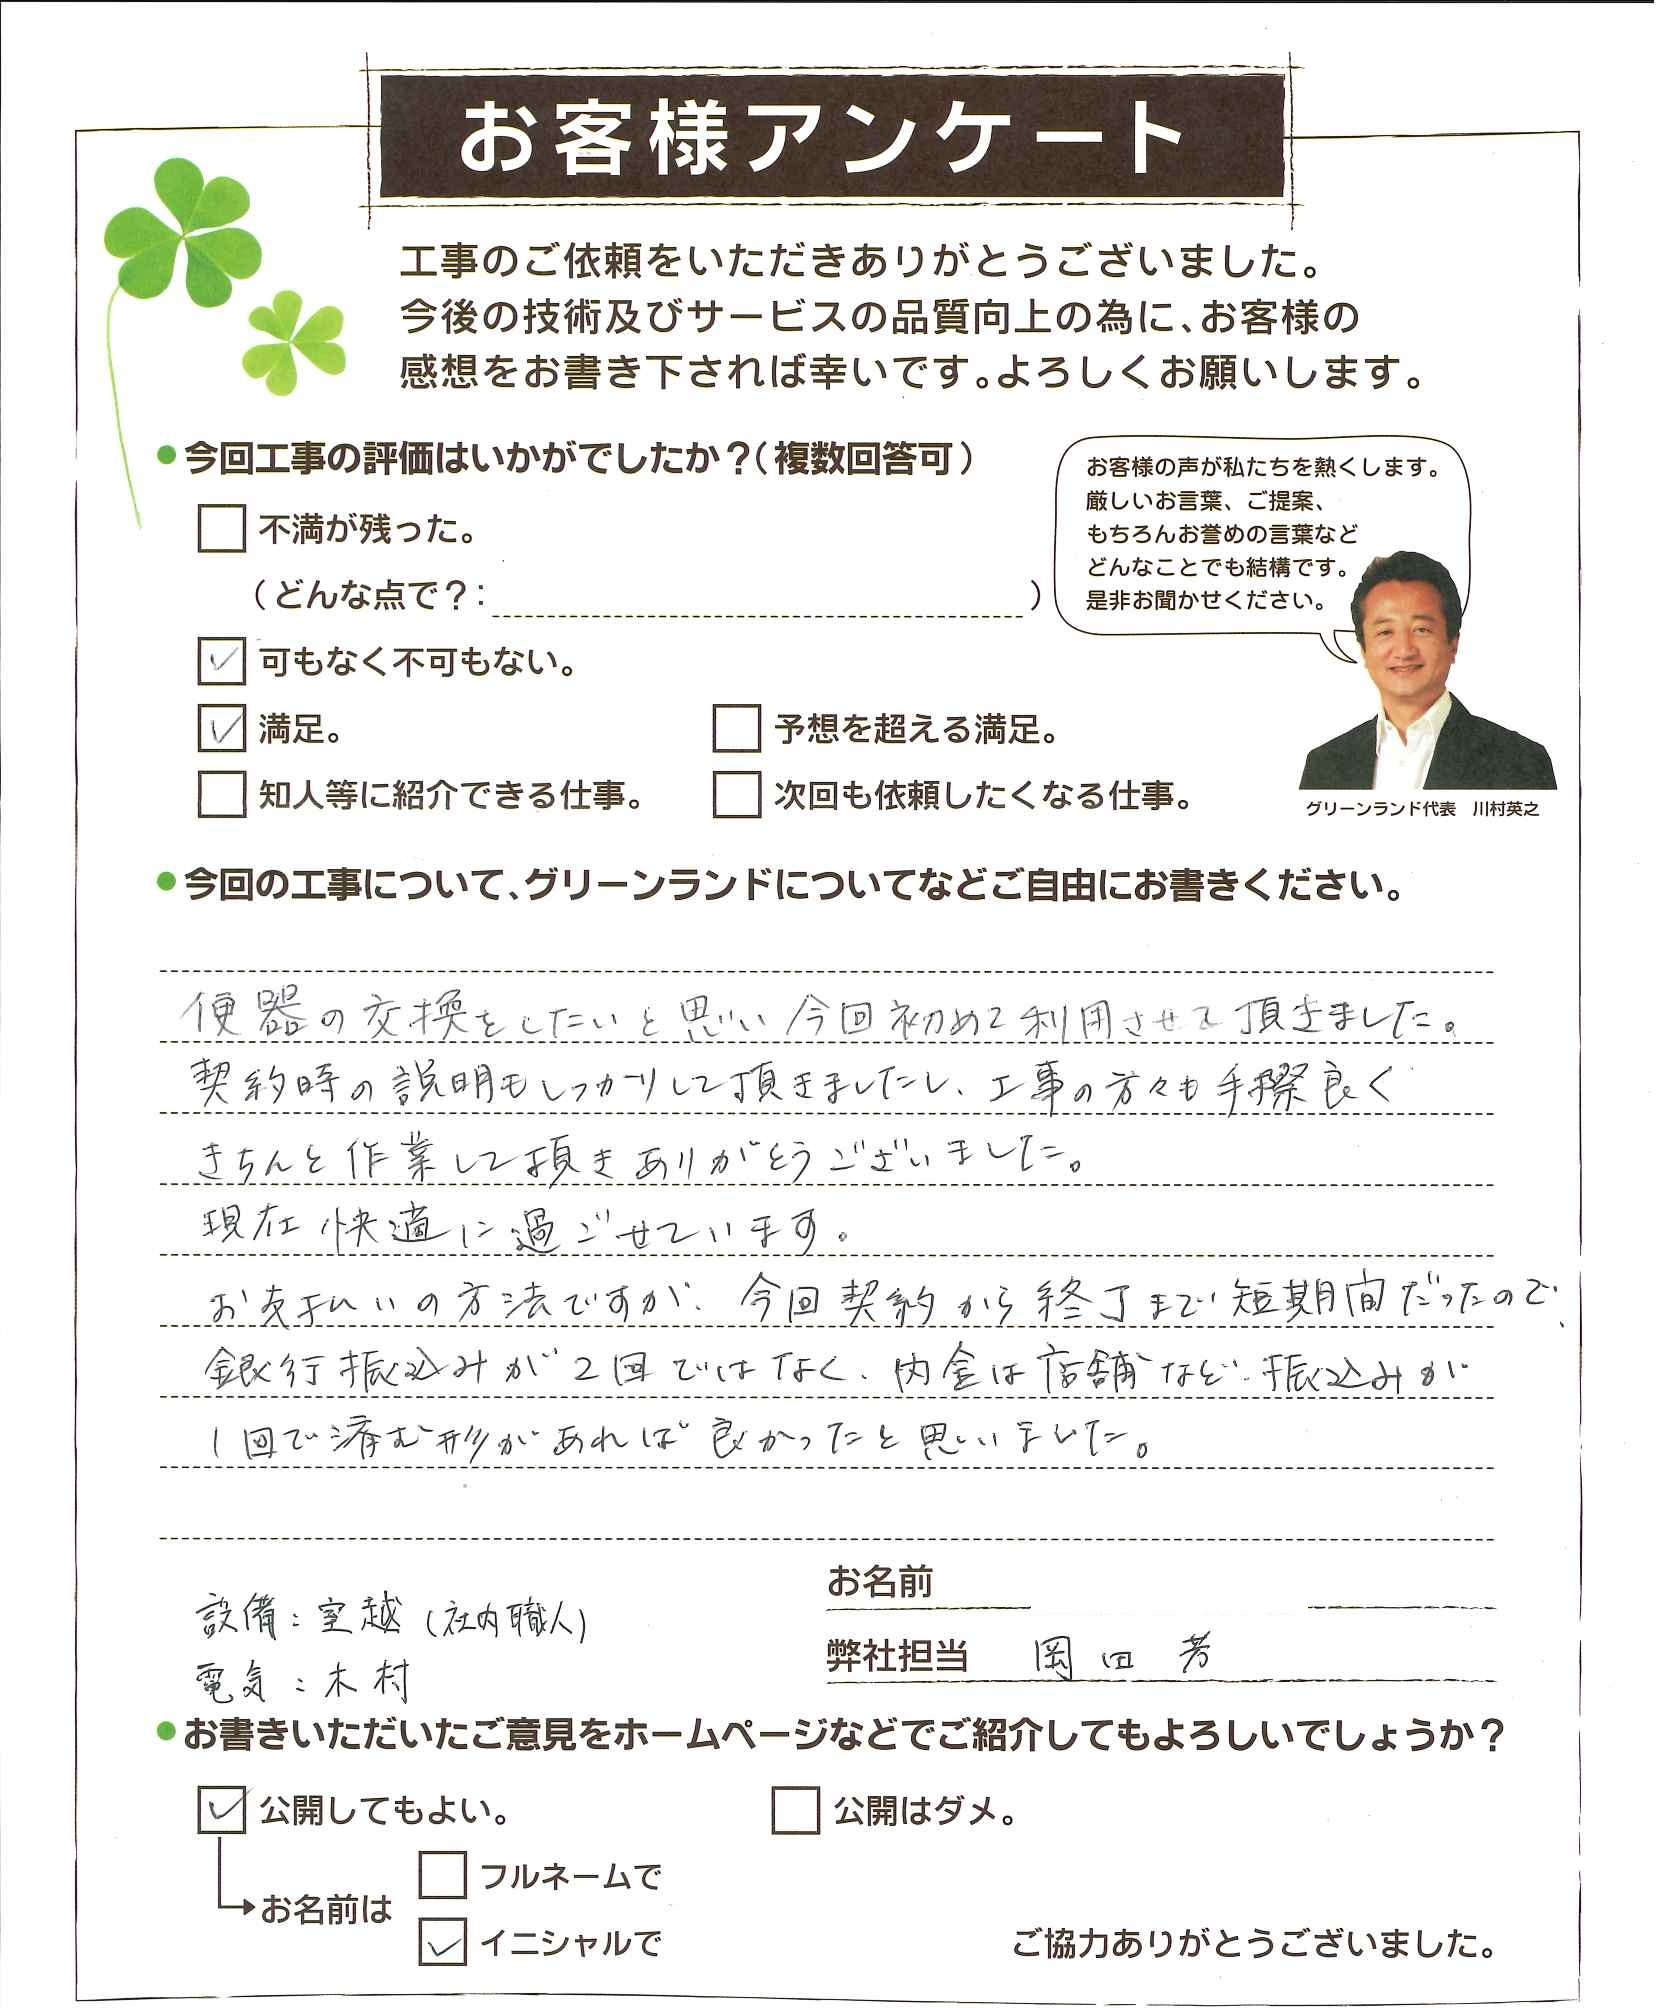 お客様アンケート
工事のご依頼をいただきありがとうございました。
今後の技術及びサービスの品質向上の為に、お客様の
感想をお書き下されば幸いです。よろしくお願いします。
●今回工事の評価はいかがでしたか？(複数回答可)
不満が残った。
(どんな点で？: )
可もなく不可もない。
満足。
予想を超える満足。
知人等に紹介できる仕事。
次回も依頼したくなる仕事。
お客様の声が私たちを熱くします。
厳しいお言葉、ご提案、
もちろんお誉めの言葉など
どんなことでも結構です。
是非お聞かせください。
グリーンランド代表 川村英之
●今回の工事について、グリーンランドについてなどご自由にお書きください。
便器の交換をしたいと思い今回初めて利用させて頂きました。
契約時の説明もしっかりして頂きましたし、工事の方々も手際良く
きちんと作業して頂きありがとうございました。
現在快適に過ごせています。
お支払いの方法ですが、今回契約から終了まで短期間だったので、
銀行振込みが2回ではなく、内金は店舗など、振込みが
1回で済む形があれば良かったと思いました。
お名前
設備：室越(社内職人)
弊社担当 岡田 芳
電気：木村
●お書きいただいたご意見をホームページなどでご紹介してもよろしいでしょうか？
公開してもよい。
公開はダメ。
お名前は
フルネームで
イニシャルで
ご協力ありがとうございました。